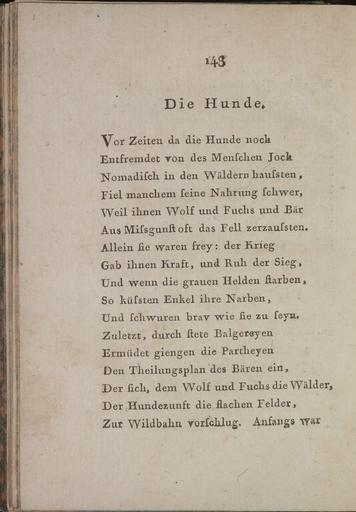 148
Die Hunde.
Vor Zeiten da die Hunde noch
Entfremdet von des Menſchen Jock
Nomadiſch in den Wäldern hauſsten,
Fiel manchem ſeine Nahrung ſchwer,
Weil ihnen Wolf und Fuchs und Bär
Aus Miſsgunſt oft das Fell zerzauſsten.
Allein ſie waren frey: der Krieg
Gab ihnen Kraft, und Ruh der Sieg,
Und wenn die grauen Helden ſtarben,
So küſsten Enkel ihre Narben,
Und ſchwuren brav wie ſie zu ſeyn.
Zuletzt, durch ſtete Balgereyen
Ermüdet giengen die Partheyen
Den Theilungsplan des Bären ein,
Der ſich, dem Wolf und Fuchs die Wälder,
Der Hundezunft die flachen Felder,
Zur Wildbahn vorſchlug. Anfangs war